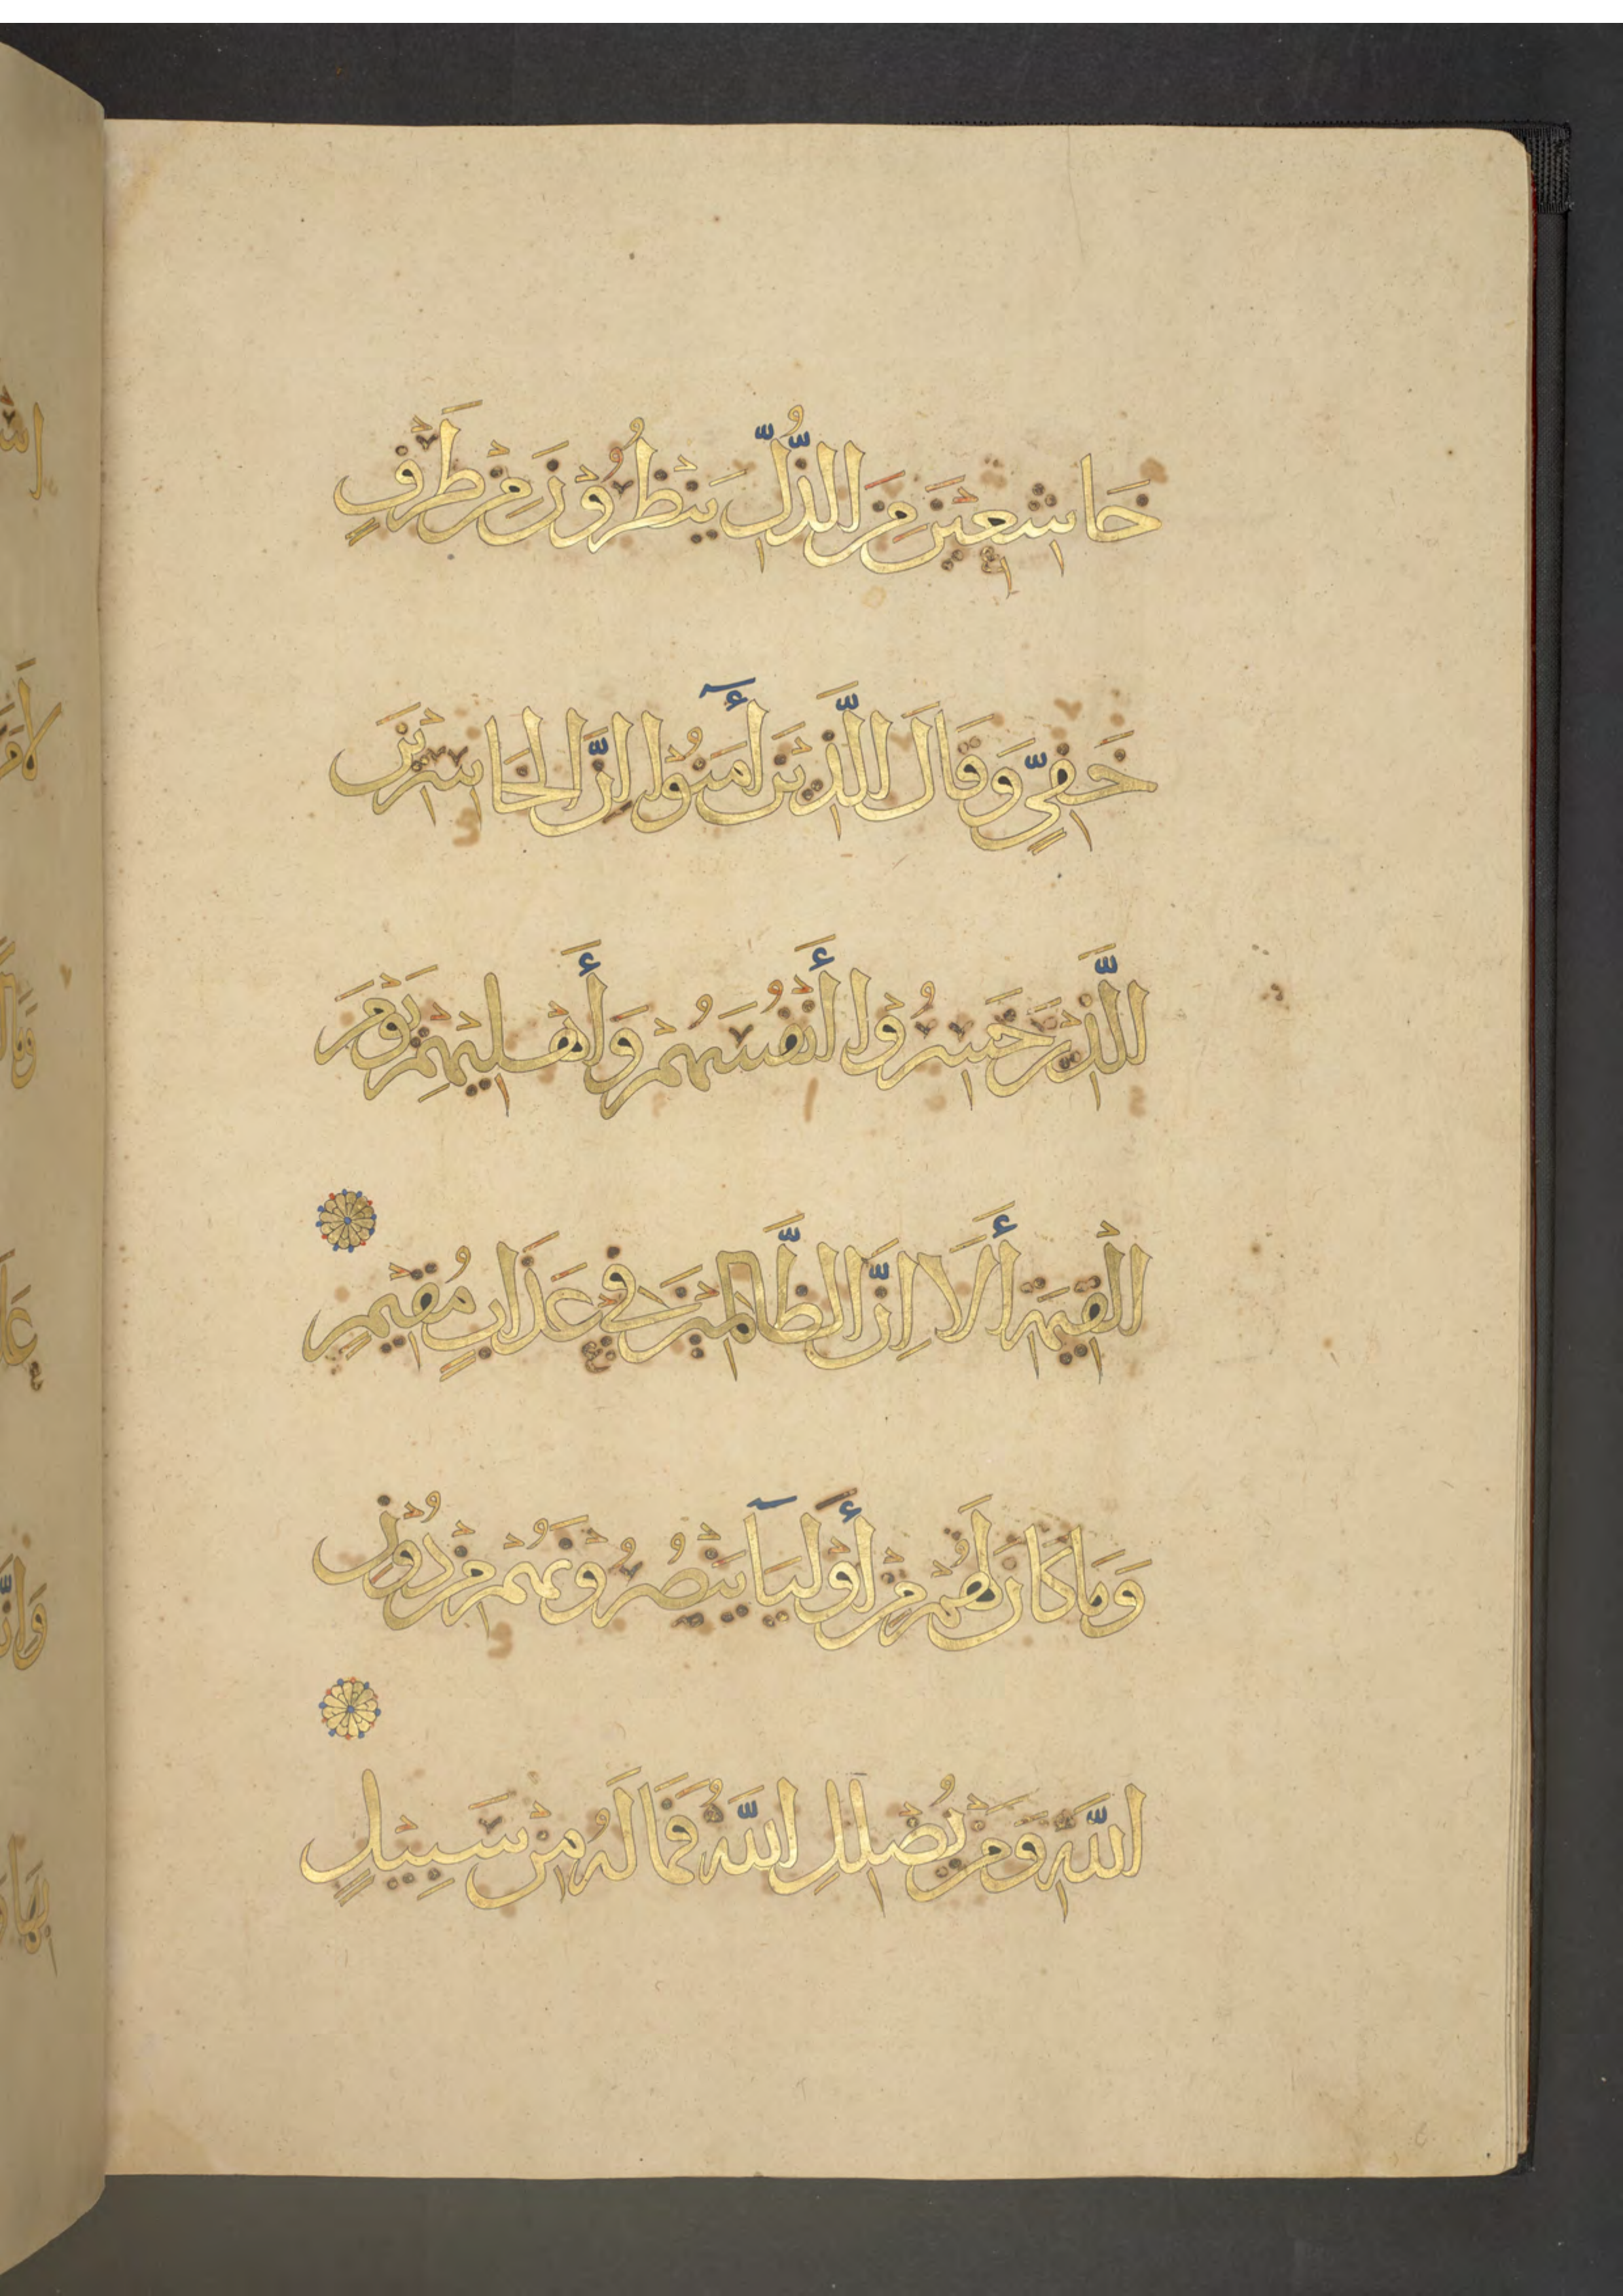 خَاشِعِيْنَ مِنَ الذُّلِّ يَنْظُرُوْنَ مِنْ طَرْفٍ
خَفِيٍّ وَقَالَ الَّذِيْنَ أٓمَنُوْا اِنَّ الْخَاسِرِيْنَ
الَّذِيْنَ خَسِرُوْا أَنْفُسَهُمْ وَأَهْلِيْهِمْ يَوْمَ
الْقِيٰمَةِ أَلَا اِنَّ الظَّالِمِيْنَ فِيْ عَذَابٍ مُقِيْمٍ
وَمَا كَانَ لَهُمْ مِنْ أَوْلِيَآ يَنْصُرُوْنَهُمْ مِنْ دُوْنِ
اللَّهِ وَمَنْ يُضْلِلِ اللَّهُ فَمَا لَهُ مِنْ سَبِيْلٍ